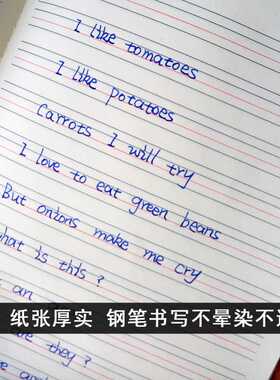 I like tomatoes
I like potatoes
Carrots I will try
I love to eat green beans
But onions make me cry
what is this?
纸张厚实 钢笔书写不晕染不
an
they?